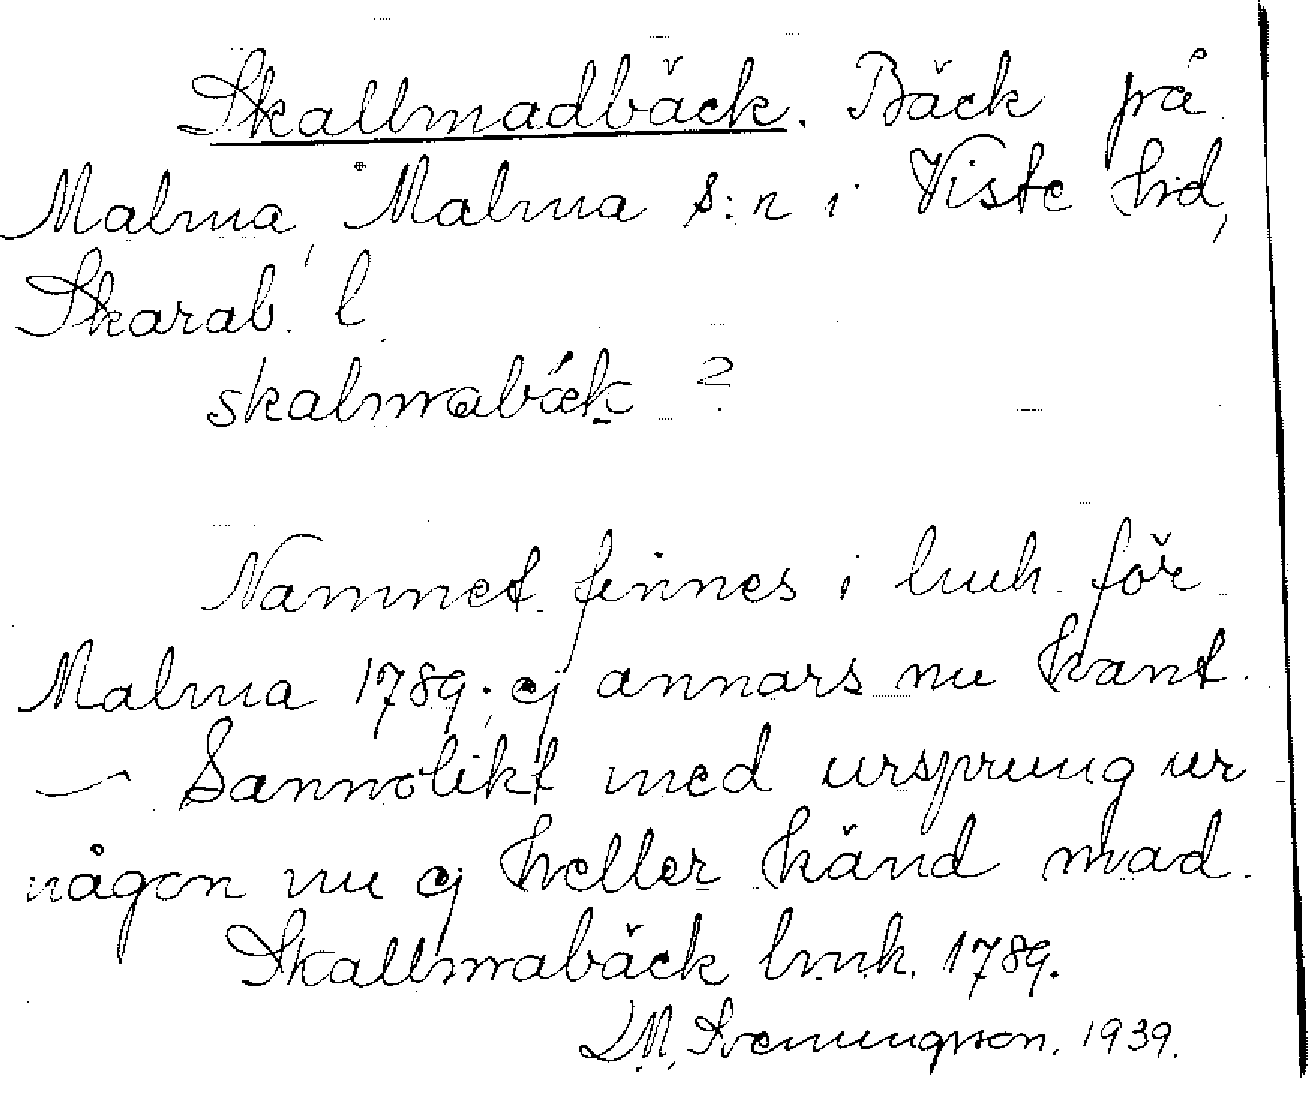 Skallmadbäck. Bäck på
Malma, Malma s:n i Viste hd,
Skarab. l.
skalmabäk ?
Namnet finnes i lmk. för
Malma 1789; ej annars nu känt.
— Sannolikt med ursprung ur
någon nu ej heller känd mad.
Skallmabäck lmk. 1789.
D.M. Svenungsson. 1939.